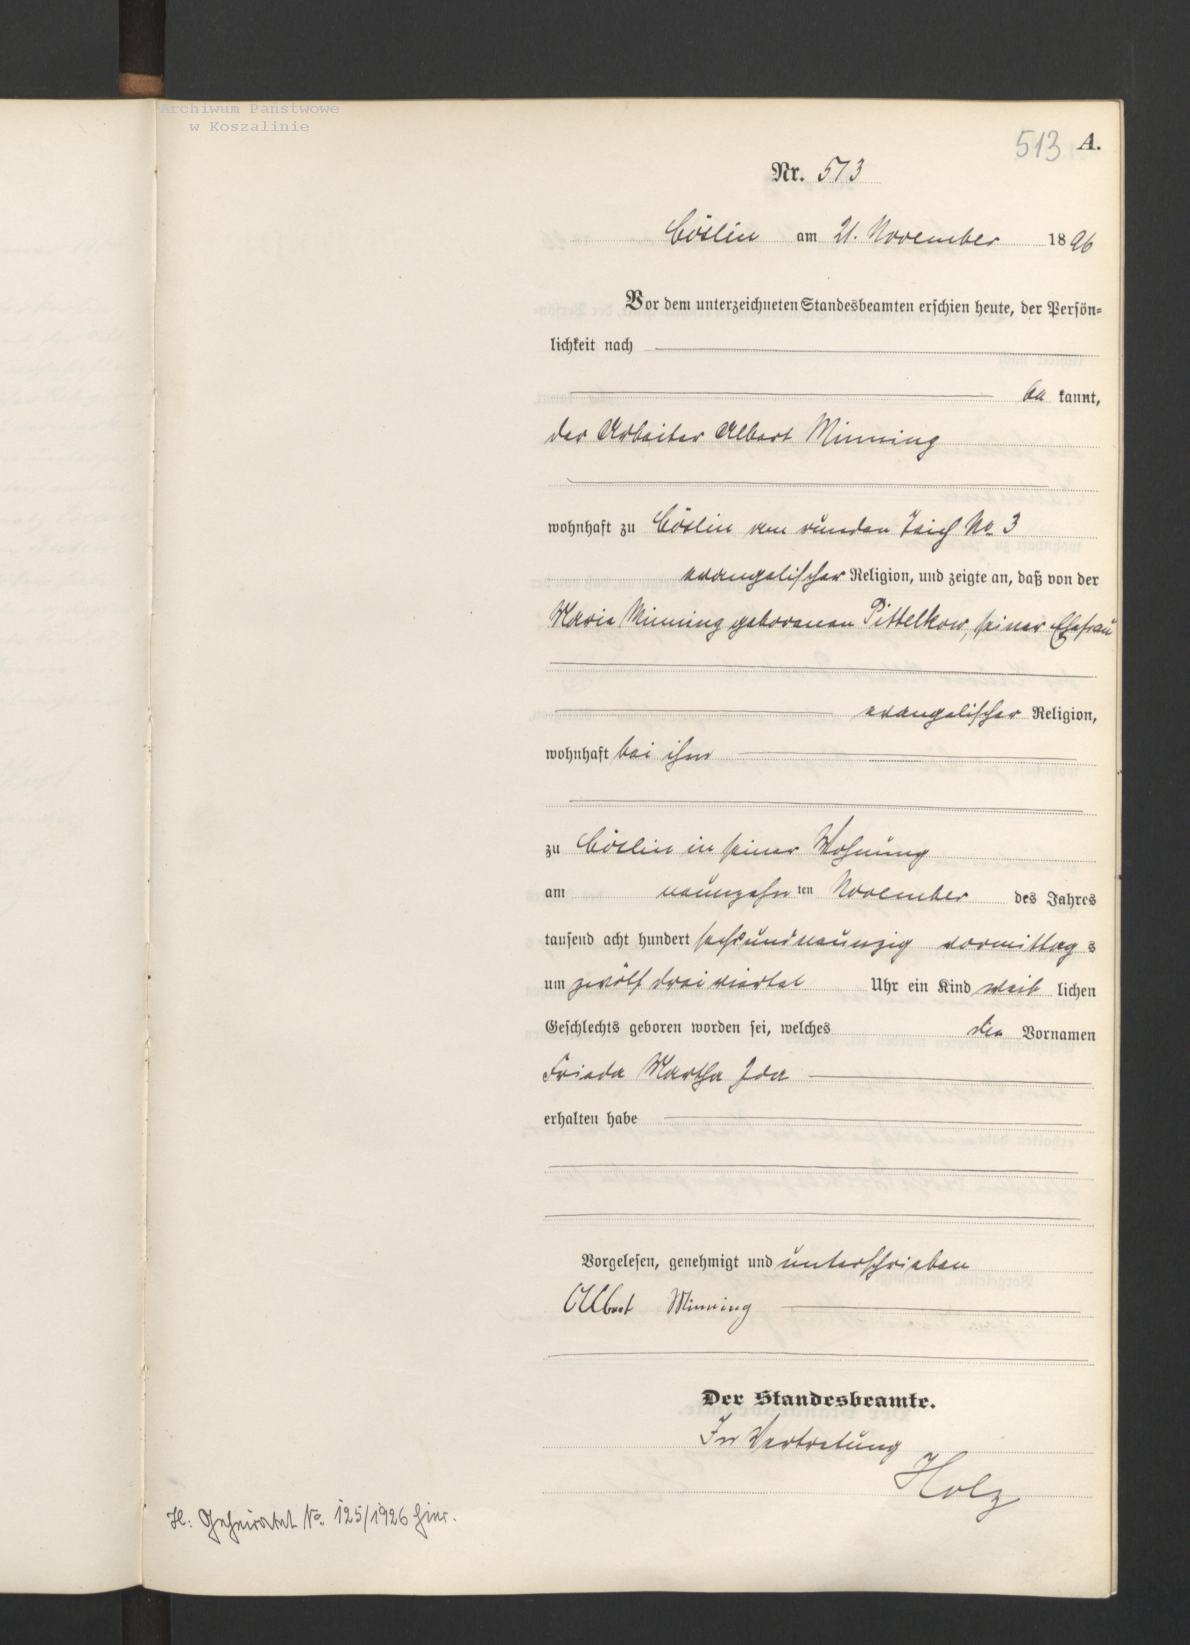 Archiwum Państwowe
w Koszalinie
513 A.
Nr. 513
Cöslin am 21. November 1896
Vor dem unterzeichneten Standesbeamten erschien heute, der Persön-
lichkeit nach
be kannt,
der Arbeiter Albert Minning
wohnhaft zu Cöslin am runden Teich No. 3
evangelischer Religion, und zeigte an, daß von der
Maria Minning geborenen Pittelkow, seiner Ehefrau
evangelischer Religion,
wohnhaft bei ihm
zu Cöslin in seiner Wohnung
am neunzehn ten November des Jahres
tausend acht hundert sechsundneunzig vormittag s
um zwölf drei viertel Uhr ein Kind weib lichen
Geschlechts geboren worden sei, welches die Vornamen
Frieda Martha Ida
erhalten habe
Vorgelesen, genehmigt und unterschrieben
Albert Minning
Der Standesbeamte.
In Vertretung
Holz
Geheiratet No. 125/1926 hier.